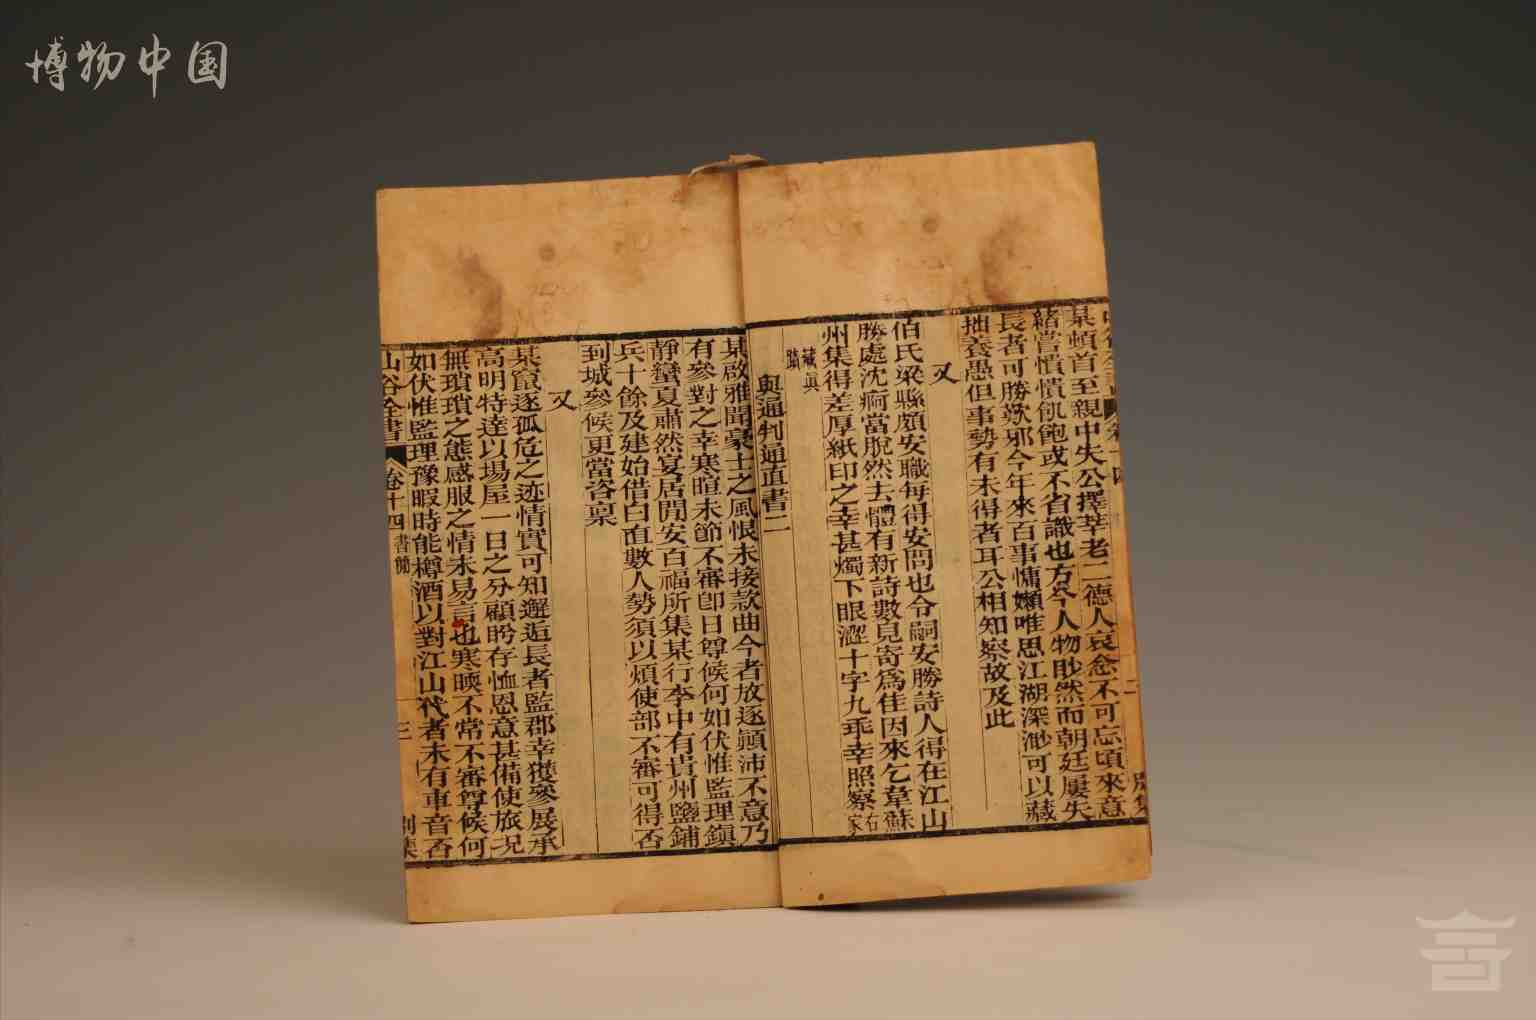 博物中国
某頓首至親中失公擇莘老二德人哀念不可忘頃來意
緒嘗憒憒飢飽或不省識也方今人物眇然而朝廷屢失
長者可勝歎邪今年來百事慵嬾唯思江湖深渺可以藏
拙養愚但事勢有未得者耳公相知察故及此
又
伯氏梁縣頗安職每得安問也令嗣安勝詩人得在江山
勝處沈痾當脫然去體有新詩數見寄為佳因來乞韋蘇
州集得差厚紙印之幸甚燭下眼澀十字九乖幸照察右家
藏眞蹟
與通判通直書二
某啟雅聞豪士之風恨未接款曲今者放逐顚沛不意乃
有參對之幸寒暄未節不審卽日尊候何如伏惟監理鎭
靜蠻夏肅然宴居閒安百福所集某行李中有貴州鹽鋪
兵十餘及建始借白直數人勢須以煩使部不審可得否
到城參候更當咨稟
又
某竄逐孤危之迹情實可知邂逅長者監郡幸獲參展承
高明特達以場屋一日之分顧盻存恤恩意甚備使旅況
無瑣瑣之態感服之情未易言也寒暎不常不審尊候何
如伏惟監理豫暇時能樽酒以對江山代者未有車音否
山谷全書 卷十四 書簡 三 別集